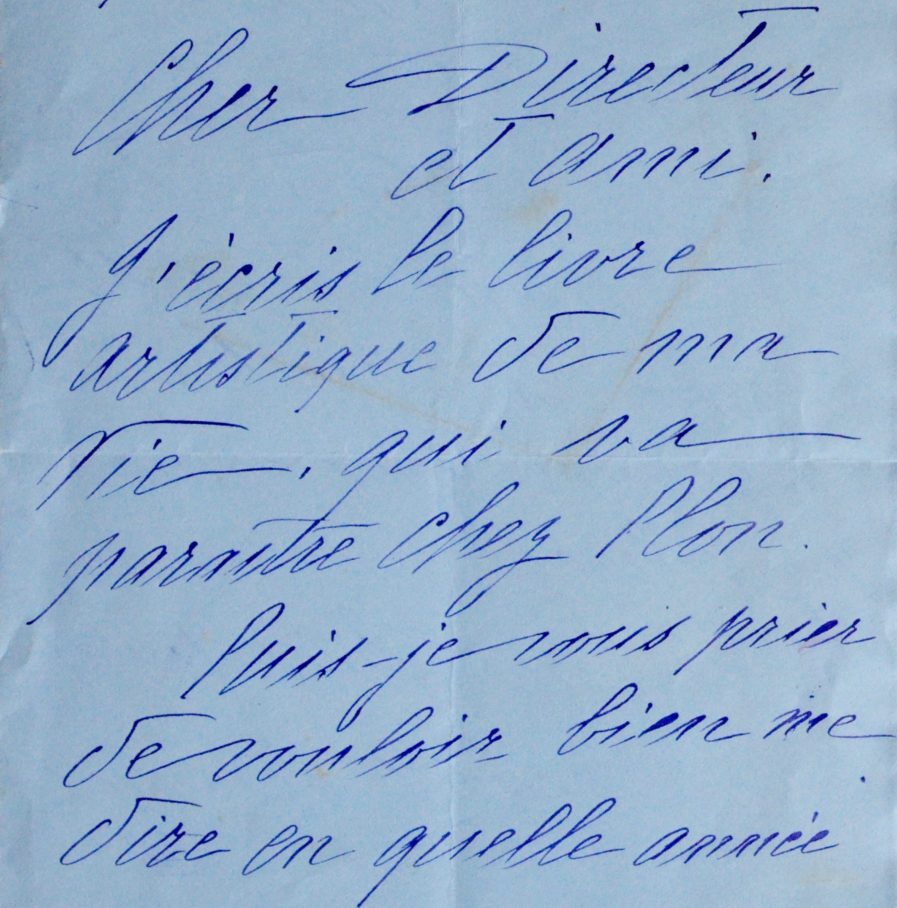 Cher Directeur
et ami.
J'écris le livre
artistique de ma
Vie, qui va
paraître chez Plon.
Puis-je vous prier
de vouloir bien me
dire en quelle année